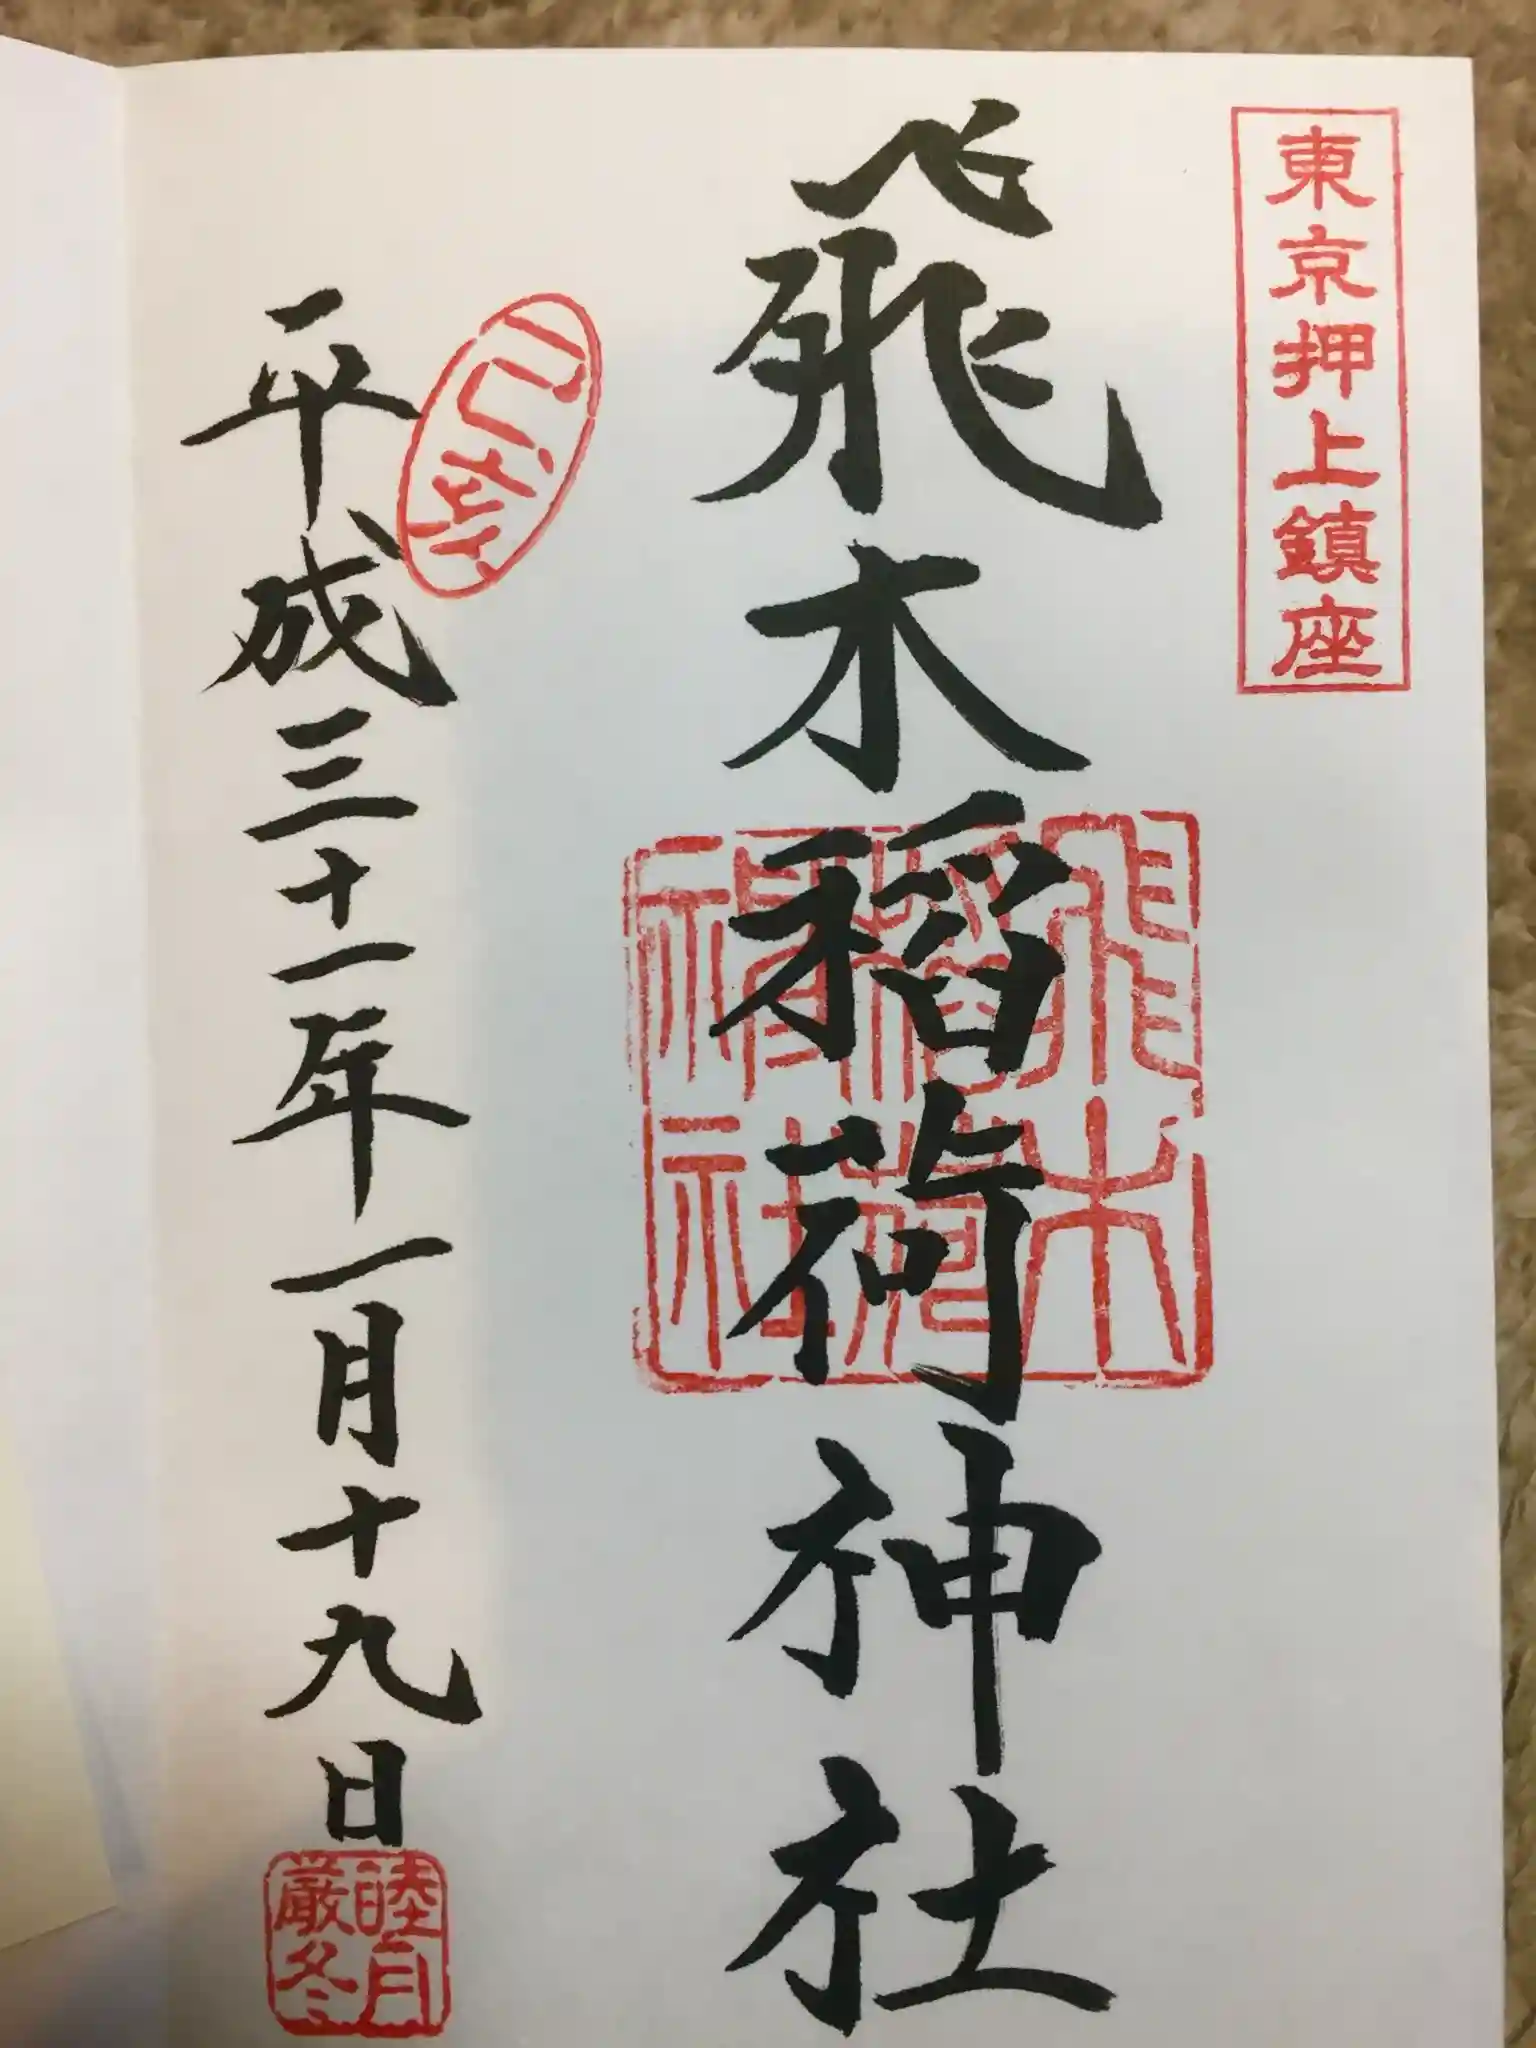 東京押上鎮座
飛木稲荷神社
飛木
稲荷
神社
己亥
平成三十一年一月十九日
睦月
厳冬